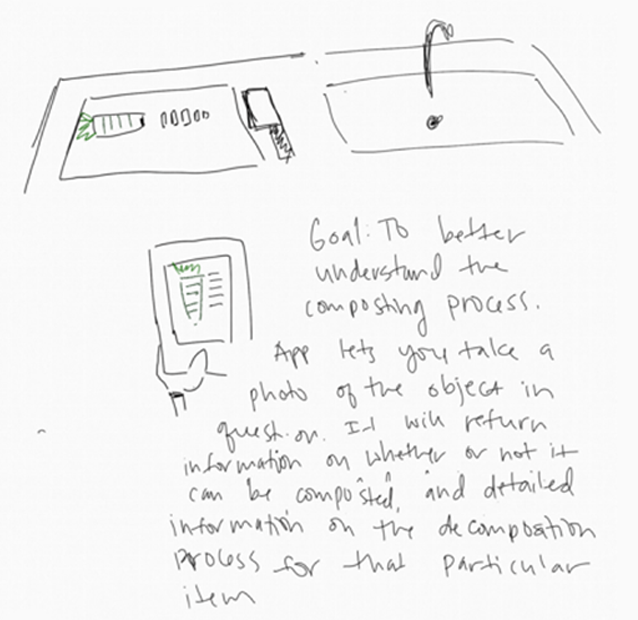 Goal: To better
understand the
composting process.
App lets you take a
photo of the object in
question. It will return
information on whether or not it
can be composted, and detailed
information on the decomposition
process for that particular
item